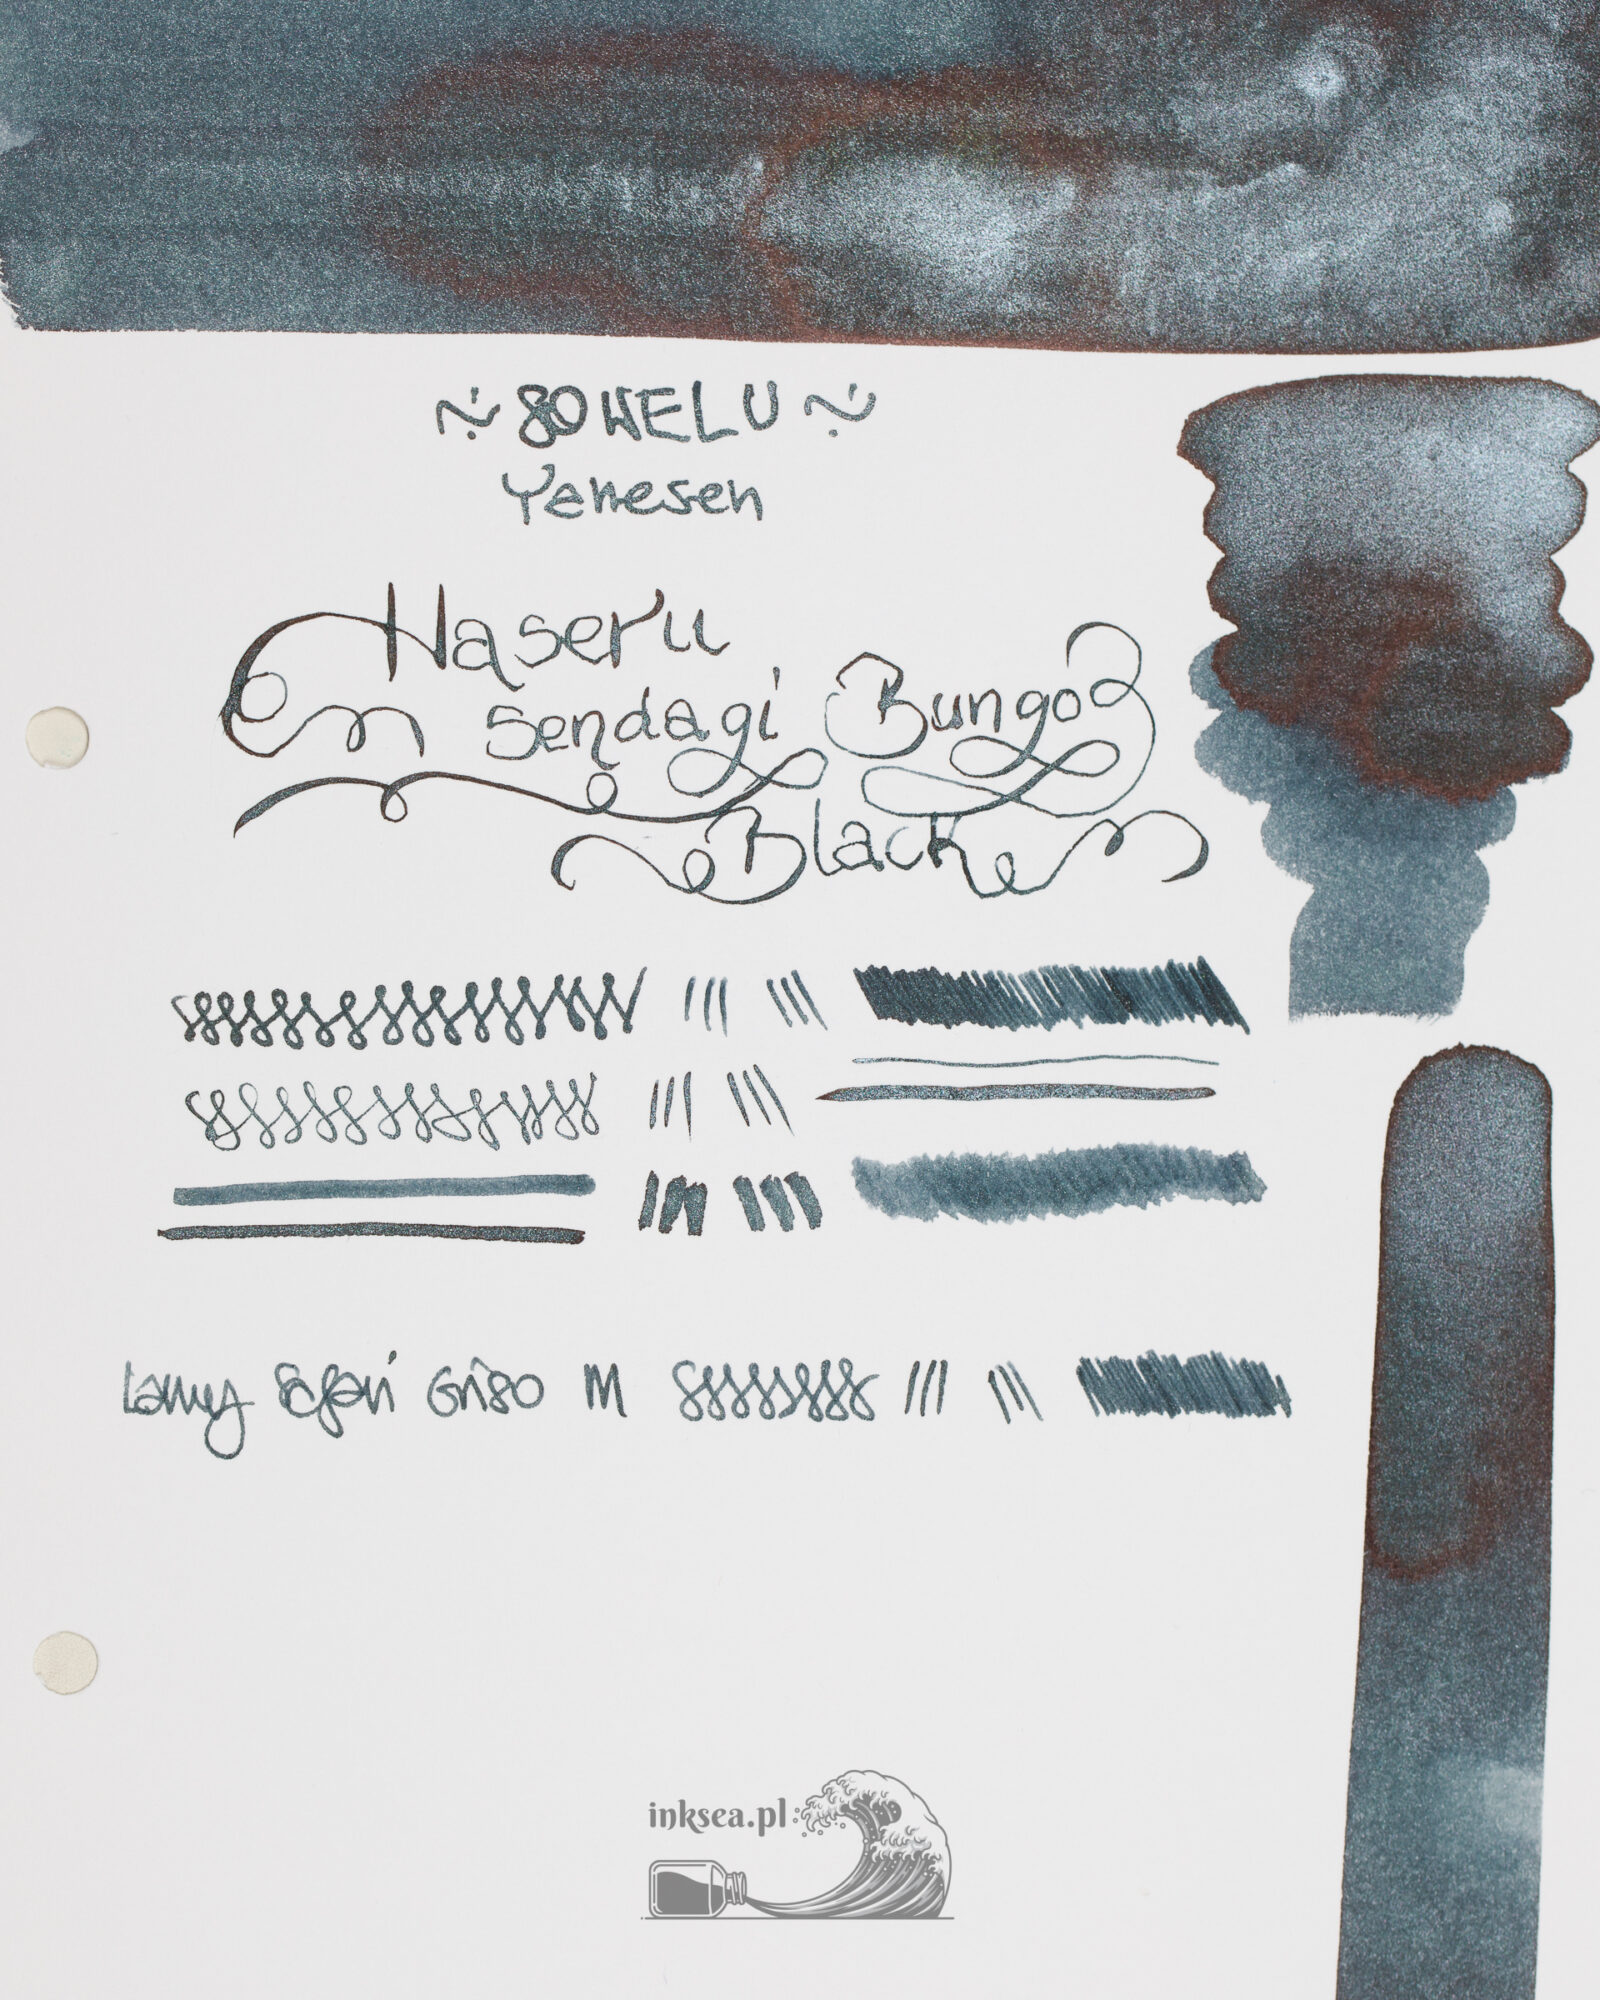 ~ SOWELU ~
Yanesen
Haseru
Sendagi Bungo
Black
Lamy Safari Griso M
inksea.pl